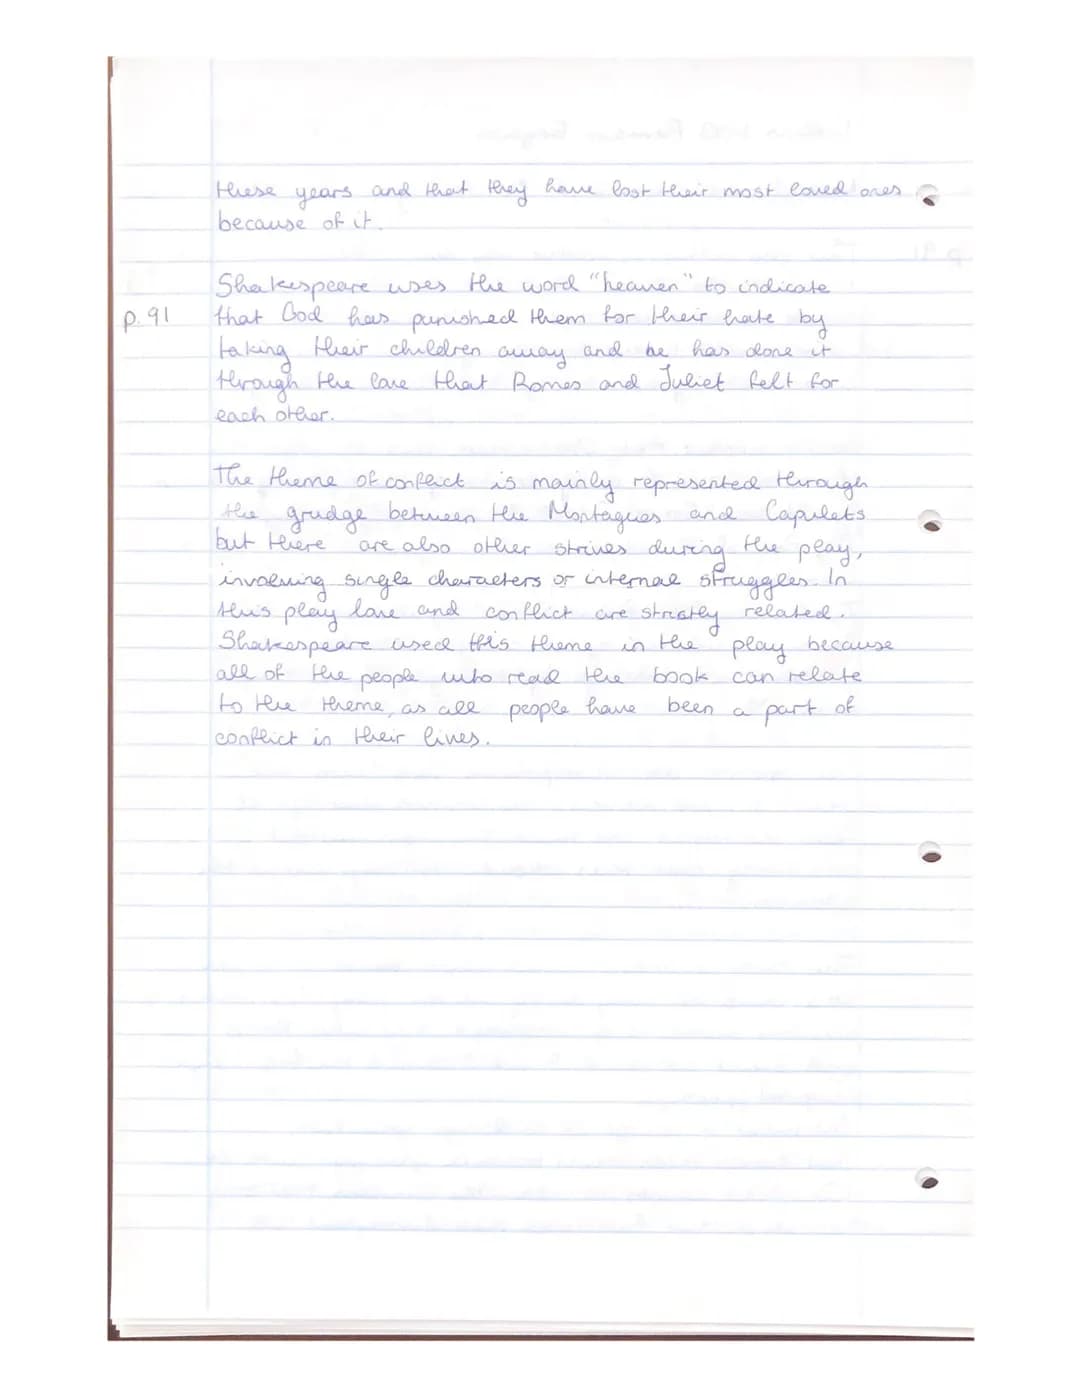 these years and that they have lost their most loved ones
because of it.
Shakespeare uses the word "heaven" to indicate
p. 91 that God has punished them for their hate by
taking their children away and he has done it
through the love that Romeo and Juliet felt for
each other.
The theme of conflict is mainly represented through
the grudge between the Montagues and Capulets
but there are also other strives during the play,
involving single characters or internal struggles. In
this play love and conflict are strictly related.
Shakespeare used this theme in the play because
all of the people who read the book can relate
to the theme, as all people have been a part of
conflict in their lives.